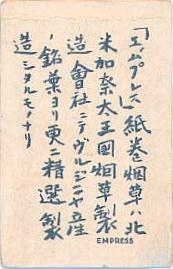 「エムプレス」紙巻烟草ハ北
米加奈太王國烟草製
造會社ニテヴルジニヤ産
ノ銘葉ヨリ更ニ精選製
造シタルモノナリ
EMPRESS